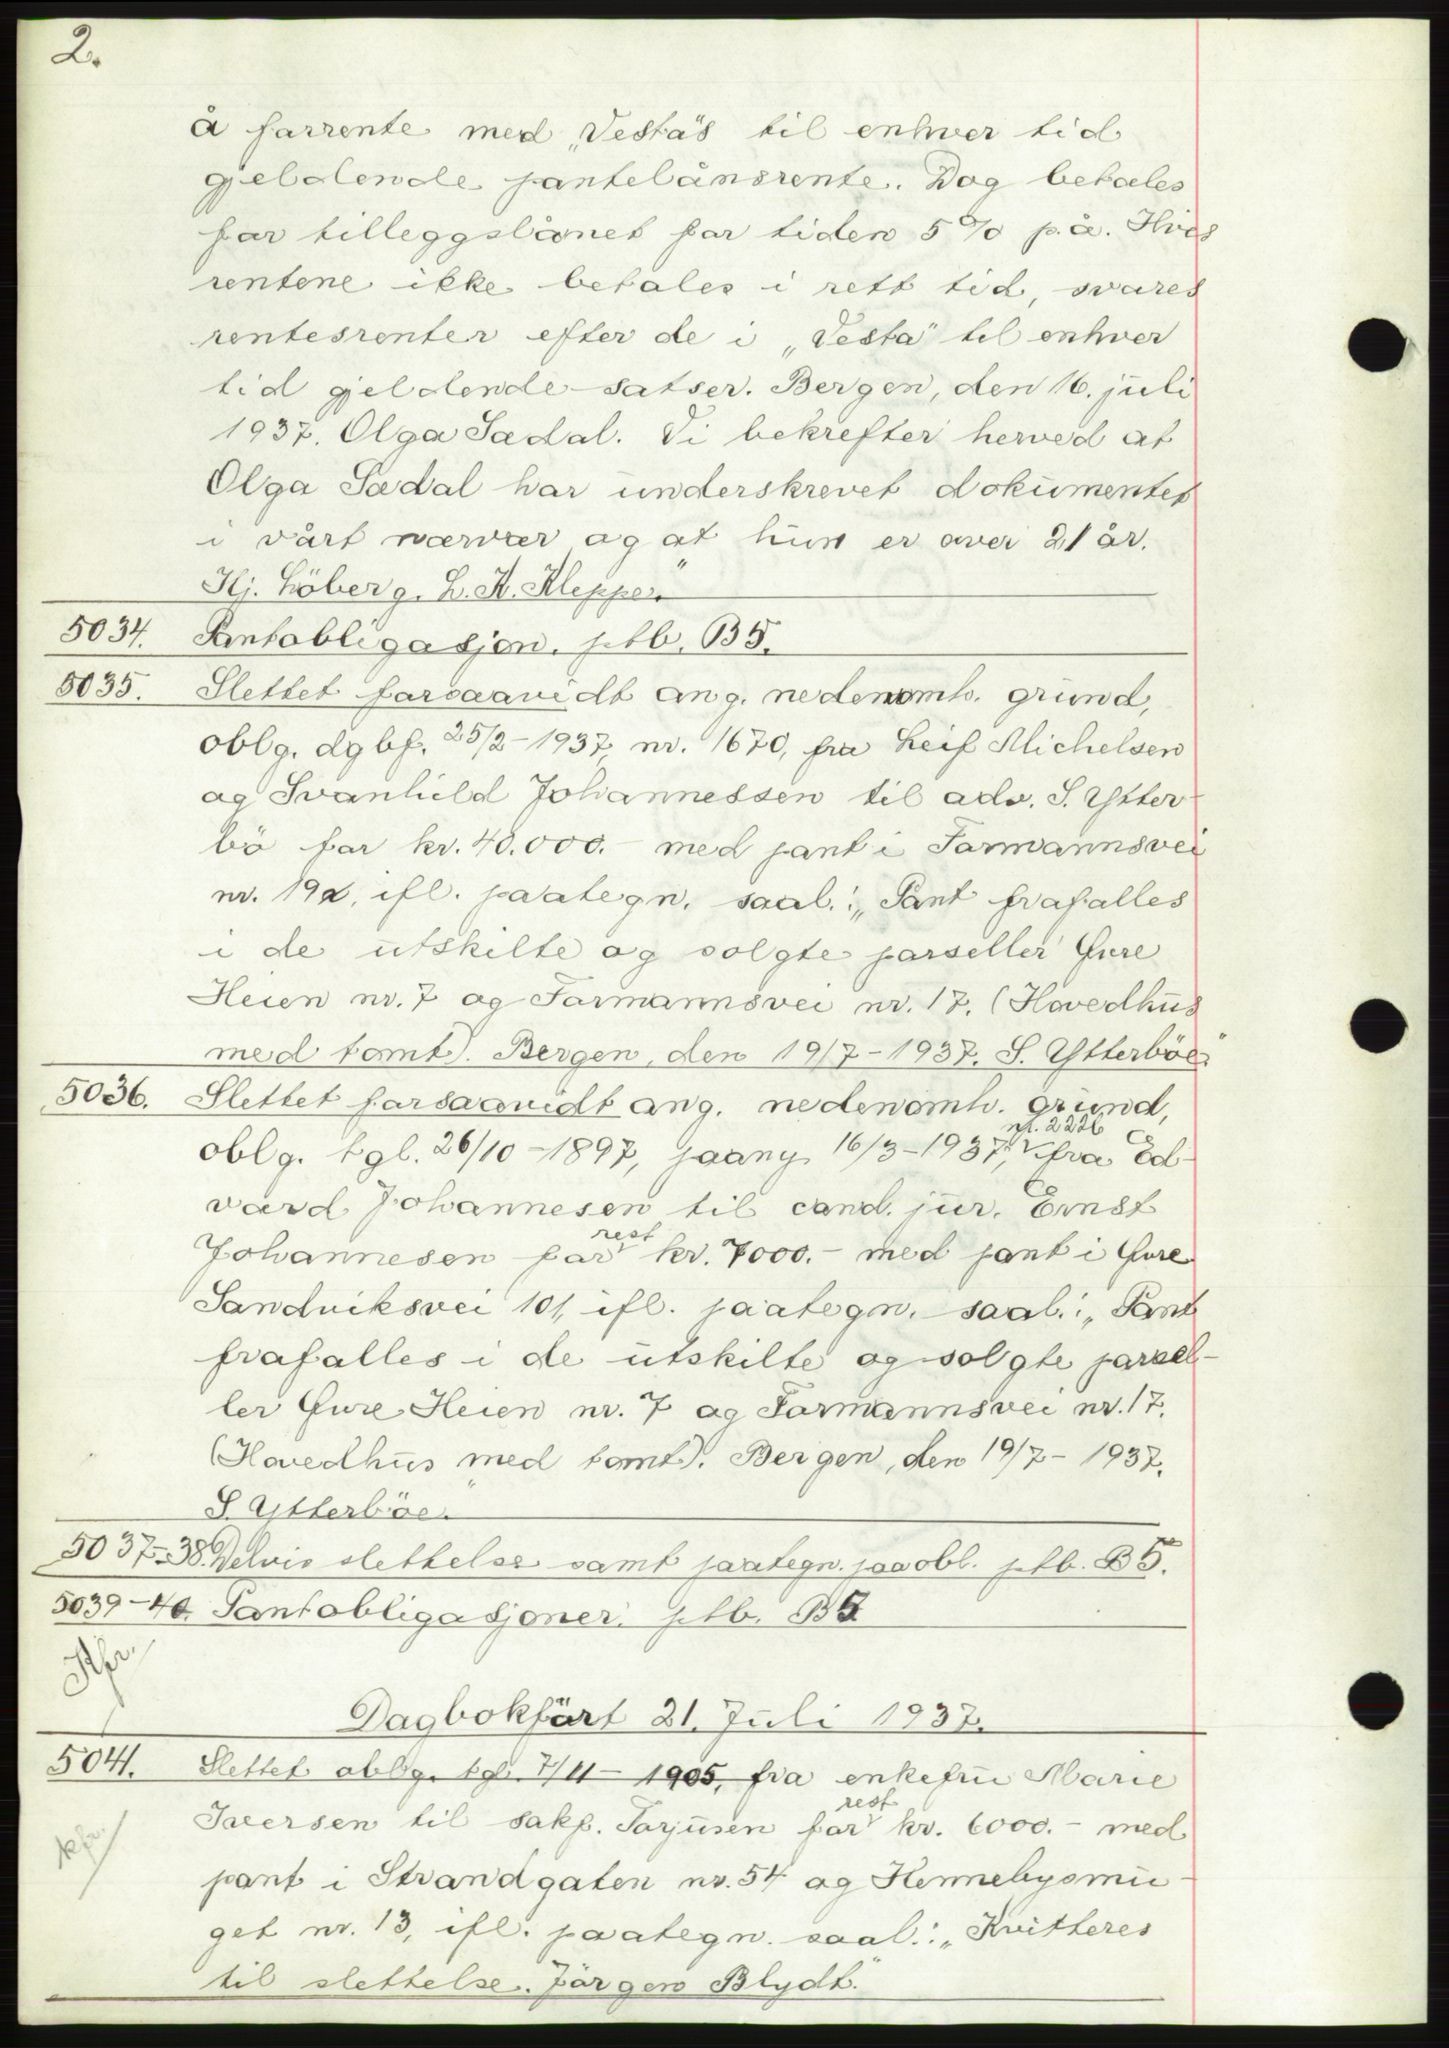 2.
å forrente med „Vesta"s til enhver tid
gjeldende pantelånsrente. Dog betales
for tilleggslånet for tiden 5 % p.å. Hvis
rentene ikke betales i rett tid, svares
rentesrenter efter de i „Vesta" til enhver
tid gjeldende satser. Bergen, den 16. juli
1937. Olga Sædal. Vi bekrefter herved at
Olga Sædal har underskrevet dokumentet
i vårt nærvær og at hun er over 21 år.
Hj. Löberg. L. K. Kleppe."
5034. Pantobligasjon. ptb. B5.
5035. Slettet forsaavidt ang. nedenomh. grund,
oblg. dgbf. 25/2-1937, nr. 1670, fra Leif Michelsen
og Svanhild Johannessen til adv. S. Ytter-
bö for kr. 40.000.- med pant i Formannsvei
nr. 19a, ifl. paategn. saal.: „Pant frafalles
i de utskilte og solgte parseller Øvre
Heien nr. 7 og Formannsvei nr. 17. (Hovedhus
med tomt). Bergen, den 19/7-1937. S. Ytterböe."
5036. Slettet forsaavidt ang. nedenomh. grund,
nr. 2226
oblg. tgl. 26/10-1897, paany 16/3-1937, fra Ed-
vard Johannesen til cand. jur. Ernst
rest
Johannesen for kr. 7000.- med pant i Øvre
Sandviksvei 101, ifl. paategn. saal.: „Pant
frafalles i de utskilte og solgte parsel-
ler Øvre Heien nr. 7 og Formannsvei nr. 17.
(Hovedhus med tomt). Bergen, den 19/7-1937.
S. Ytterböe."
5037-38. Delvis slettelse samt paategn. paa obl. ptb. B5.
5039-40. Pantobligasjoner. ptb. B5
Kfr.
Dagbokfört 21. Juli 1937.
5041. Slettet oblg. tgl. 7/11-1905, fra enkefru Marie
rest
Iversen til sakf. Torjusen for kr. 6000.- med
kfr.
pant i Strandgaten nr. 54 og Hennebysmu-
get nr. 13, ifl. paategn. saal.: „Kvitteres
til slettelse. Jörgen Blydt."